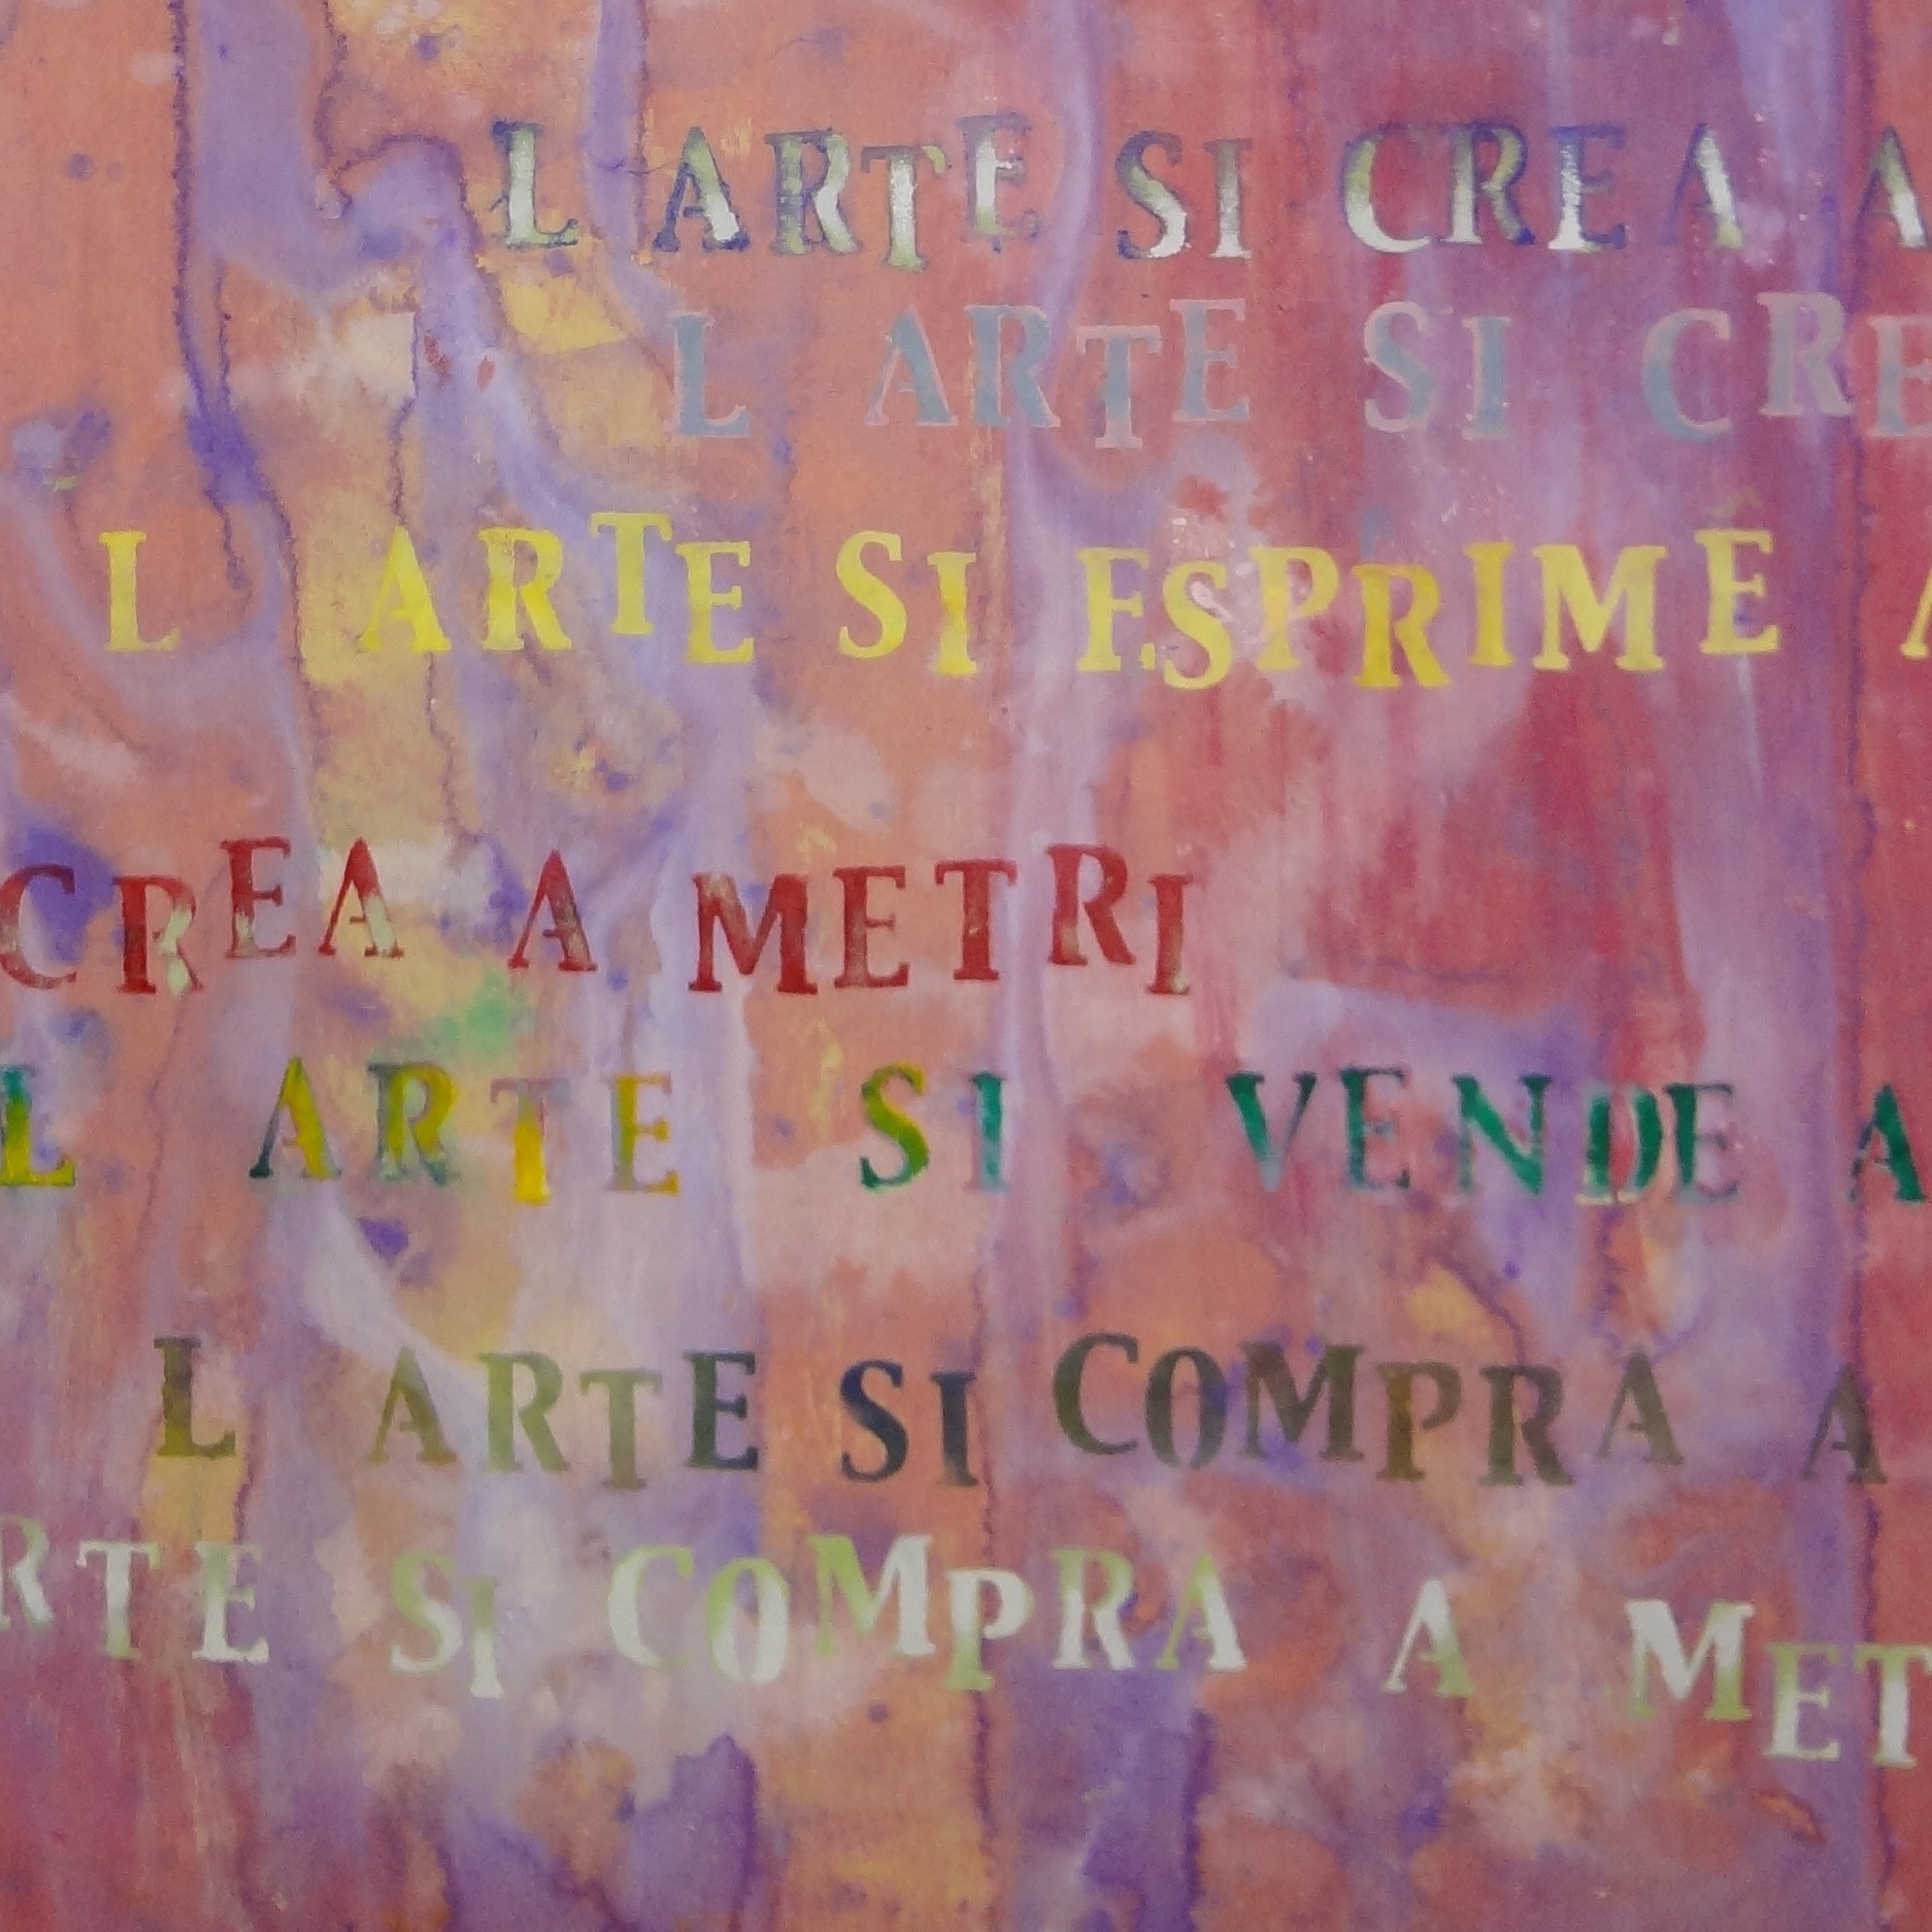 L ARTE SI CREA A
L ARTE SI CRE
L ARTE SI ESPRIME A
CREA A METRI
L ARTE SI VENDE A
L ARTE SI COMPRA A
RTE SI COMPRA A MET